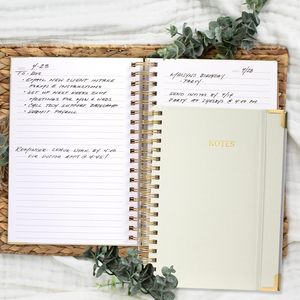 4-23
TO-DOS
- EMAIL NEW CLIENT INTAKE
FORMS & INSTRUCTIONS
- SET UP NEXT WEEKS
MEETINGS FOR MON & WEDS.
- CALL TECH SUPPORT
- SUBMIT PAYROLL
REMINDER: LEAVE WORK BY 4:00
FOR DOCTOR APPT @ 4:45!
BIRTHDAY
PARTY
SEND INVITES BY
PARTY AT @ 4:00 PM
NOTES